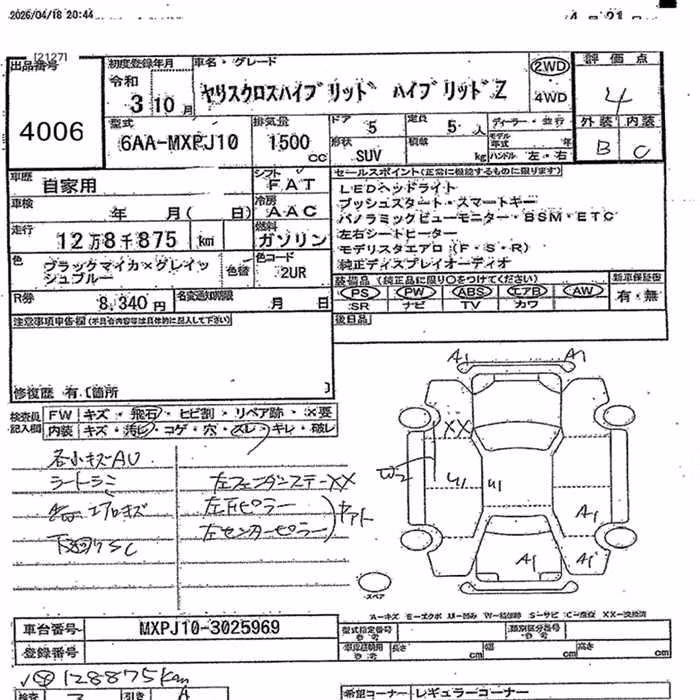 2026/04/18 20:44
4 月 21
[2127]
出品番号
4006
初度登録年月
令和
3 10 月
車名・グレード
ヤリスクロスハイブリッド ハイブリッドZ
2WD
4WD
評価点
4
外装 内装
B C
型式
6AA-MXPJ10
排気量
1500
cc
ドア
5
形状
SUV
定員
5 人
積載
kg
ディーラー・並行
モデル年式 年
ハンドル 左・右
車歴
自家用
シフト
FAT
車検
年 月( 日)
冷房
AAC
走行
12万8千875 km
燃料
ガソリン
色
ブラックマイカ×グレイッシュブルー
色替
色コード
2UR
R券
8,340 円
名変通知期限
月 日
セールスポイント(正常に機能するものに限ります)
LEDヘッドライト
プッシュスタート・スマートキー
パノラミックビューモニター・BSM・ETC
左右シートヒーター
モデリスタエアロ(F・S・R)
純正ディスプレイオーディオ
装備品 (純正品に限り○をつけてください)
PS PW ABS エアB AW
SR ナビ TV カワ
新車保証書
有・無
後日品
注意事項申告欄(不具合内容等は具体的に記入して下さい)
修復歴 有 [箇所 ]
検査員記入欄
FW キズ・飛石・ヒビ割・リペア跡・X要
内装 キズ・汚レ・コゲ・穴・スレ・キレ・破レ
各小キズAU
シートシミ
エアロキズ
左フェンダーステーXX
左Fピラー
左センターピラー
A1 A1
XX
W2
U1 U1
A1
A1 A1
スペア
A-キズ E-エクボ U-凹み W-補修跡 S-サビ C-腐食 XX-交換済
車台番号
MXPJ10-3025969
登録番号
型式指定番号 参考
類別区分番号 参考
長さ cm 幅 cm 高さ cm
128875km
検査
引き A
希望コーナー レギュラーコーナー